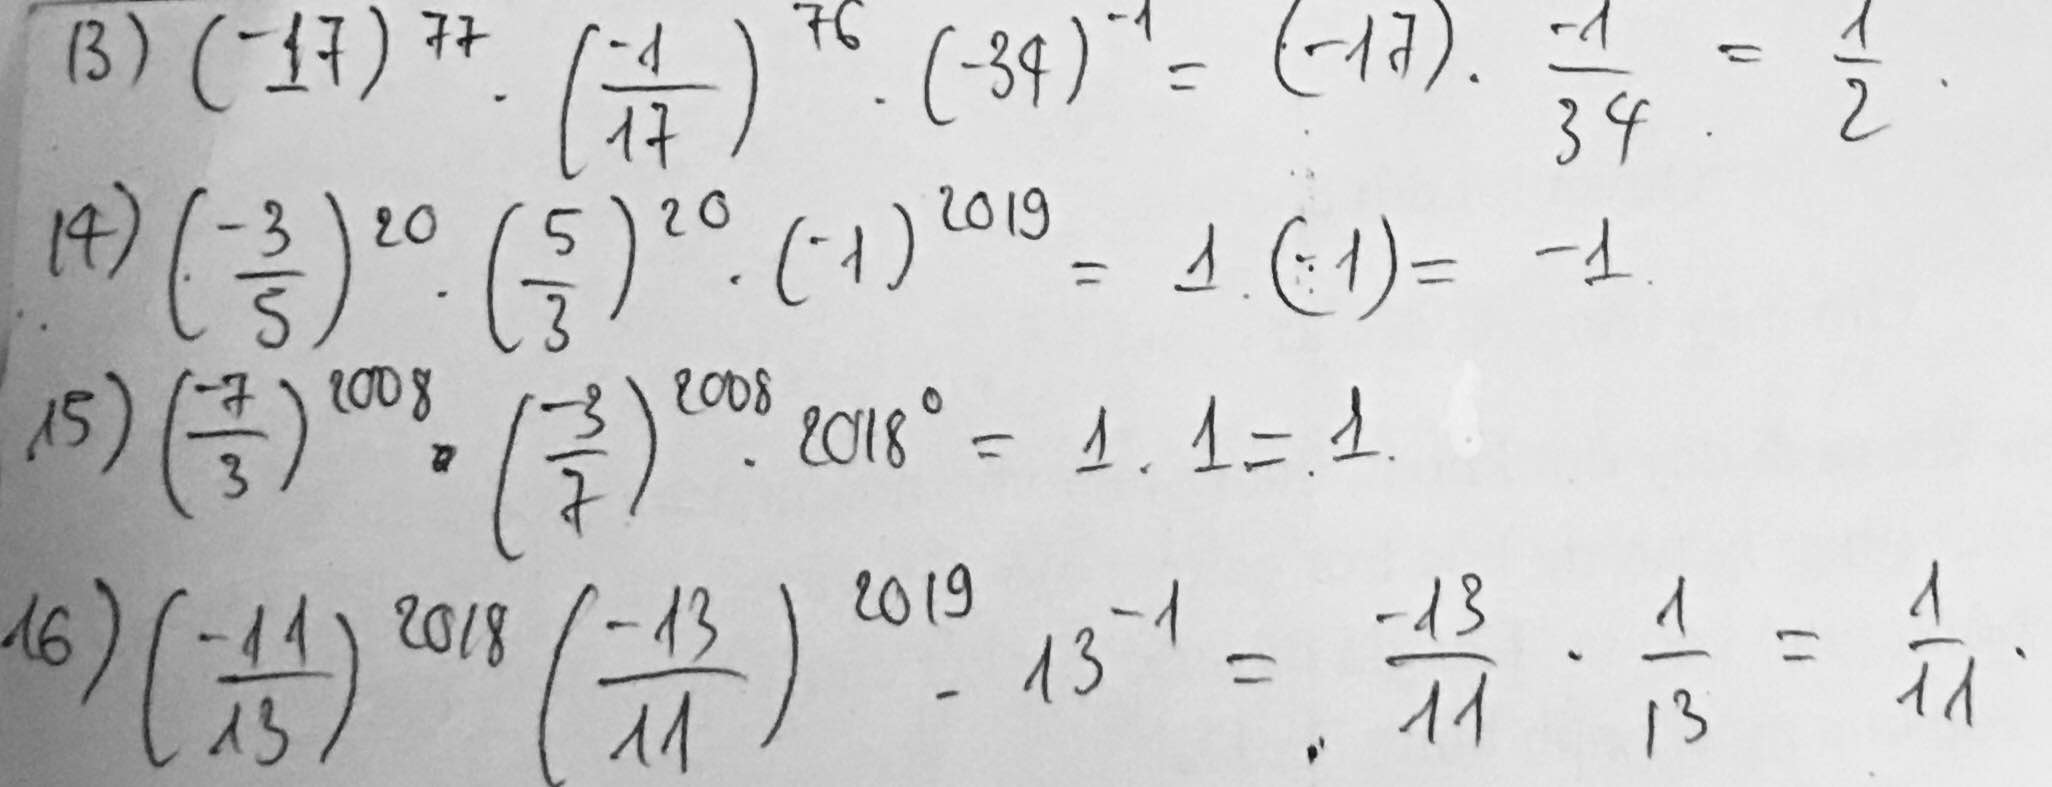 13) (-17)^77 . (-1/17)^76 . (-34)^-1 = (-17) . -1/34 = 1/2 .
14) (-3/5)^20 . (5/3)^20 . (-1)^2019 = 1 . (-1) = -1.
15) (-7/3)^2008 . (-3/7)^2008 . 2018^0 = 1 . 1 = 1.
16) (-11/13)^2018 (-13/11)^2019 . 13^-1 = -13/11 . 1/13 = 1/11 .